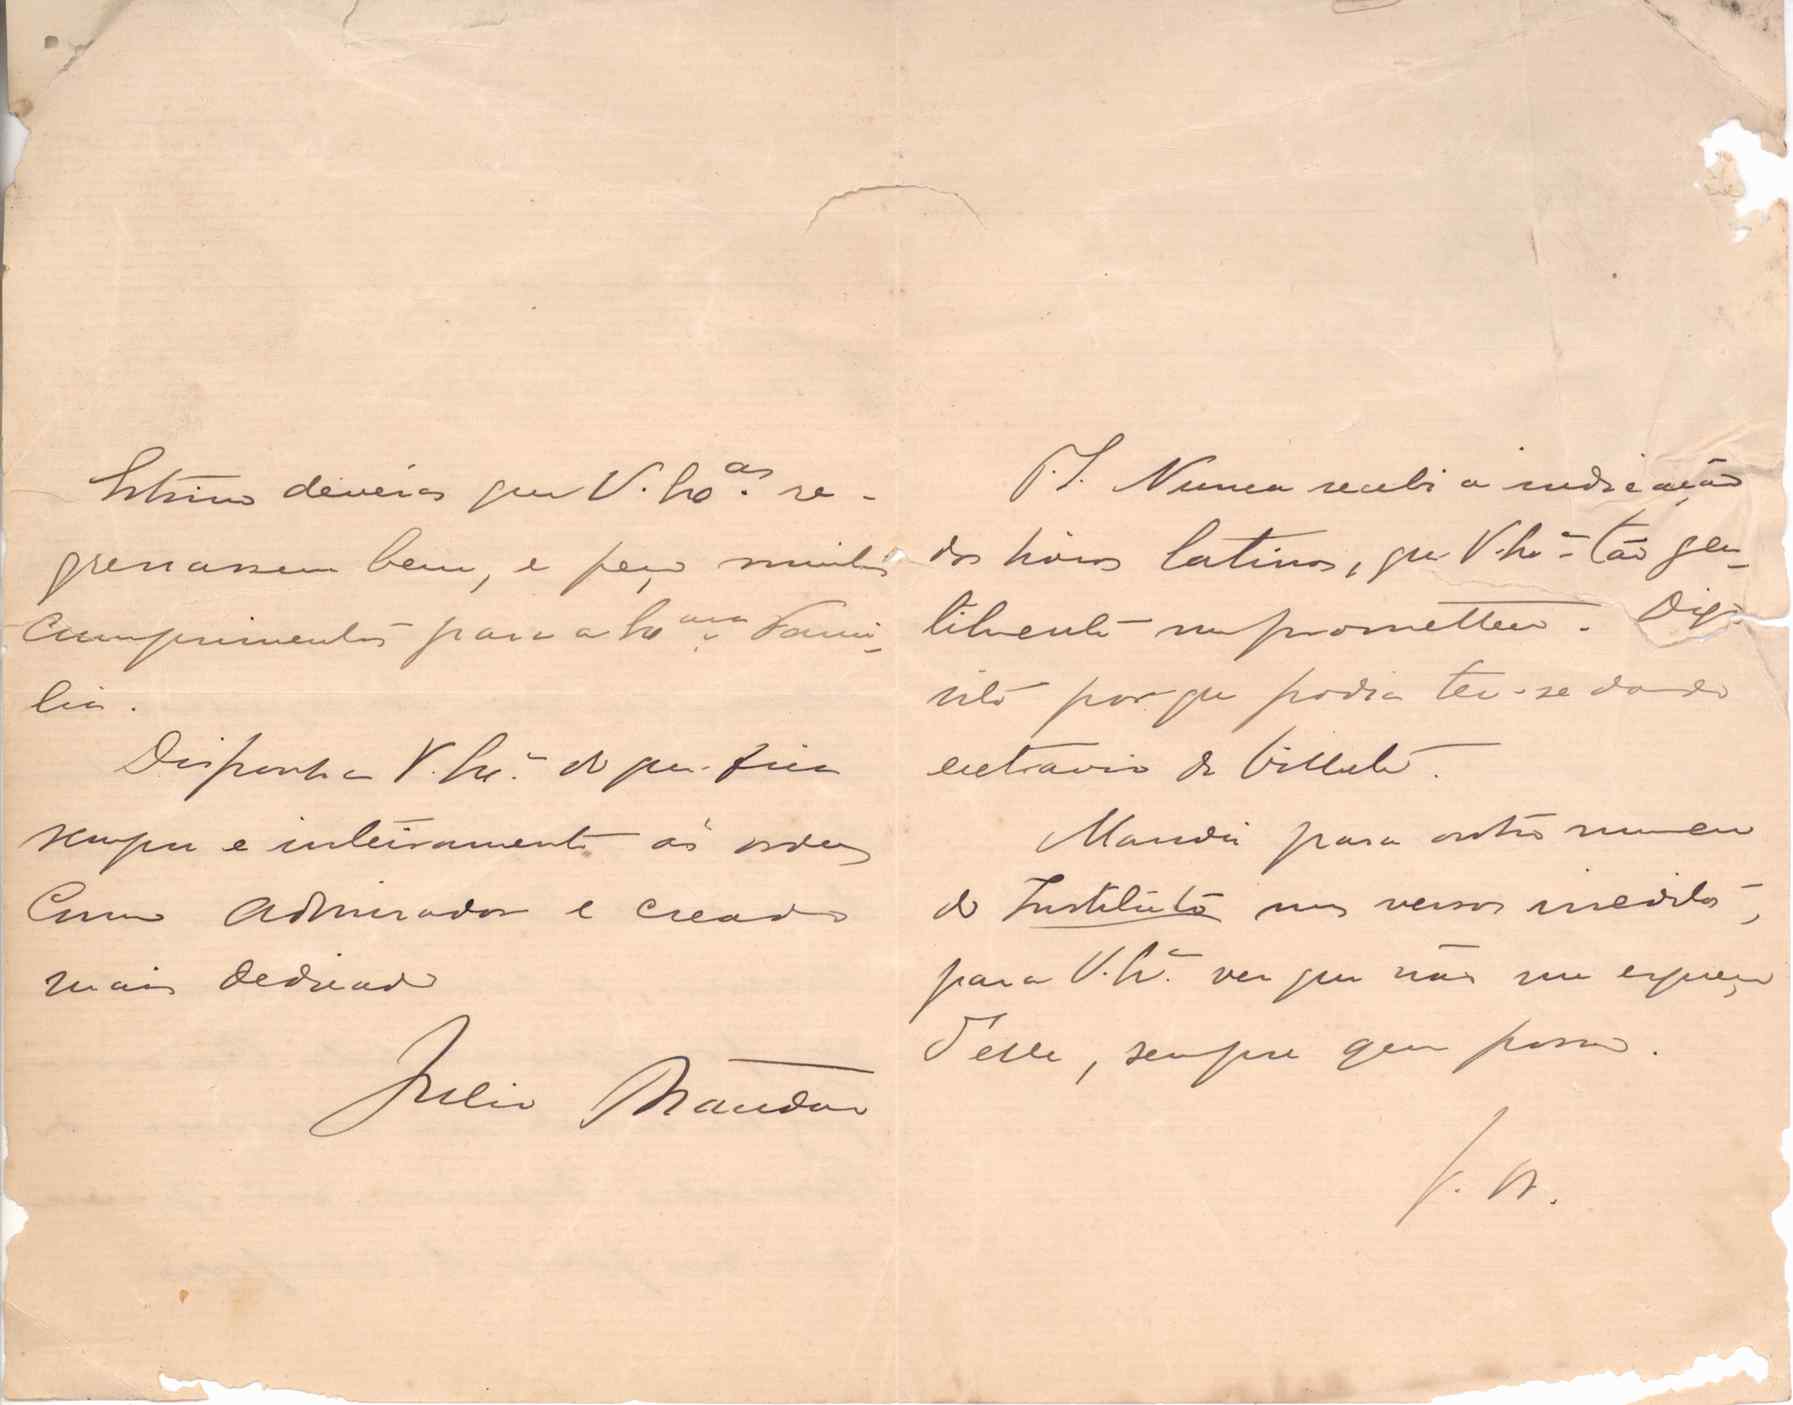 Estimo devéras que V. Ex.as re-
gressassem bem, e peço muitos
cumprimentos para a Ex.ma Fami-
lia.
Disponha V. Ex.a do que fica
sempre e inteiramente ás ordens
Como admirador e creado
mais dedicado
Julio Brandão
P.S. Nunca recebi a indicação
dos livros latinos, que V. Ex.a tão gen-
tilmente me prometteu. Digo
isto porque podia ter-se dando
extravio de bilhete.
Mandei para outro numero
do Instituto uns versos ineditos,
para V. Ex.a ver que não me esqueço
d'elle, sempre que posso.
J. B.